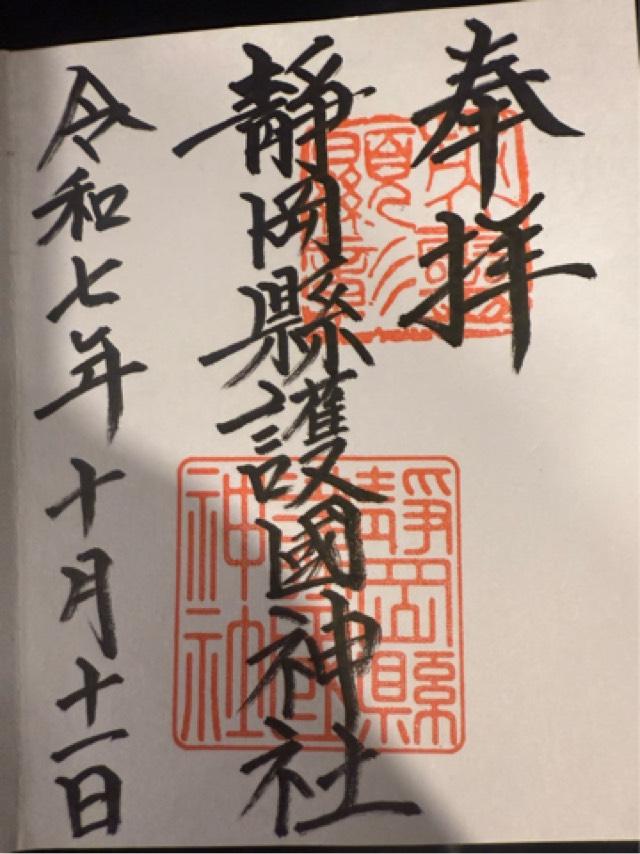 奉拝
靜岡縣護國神社
靜岡縣
護國
神社
令和七年十月十一日